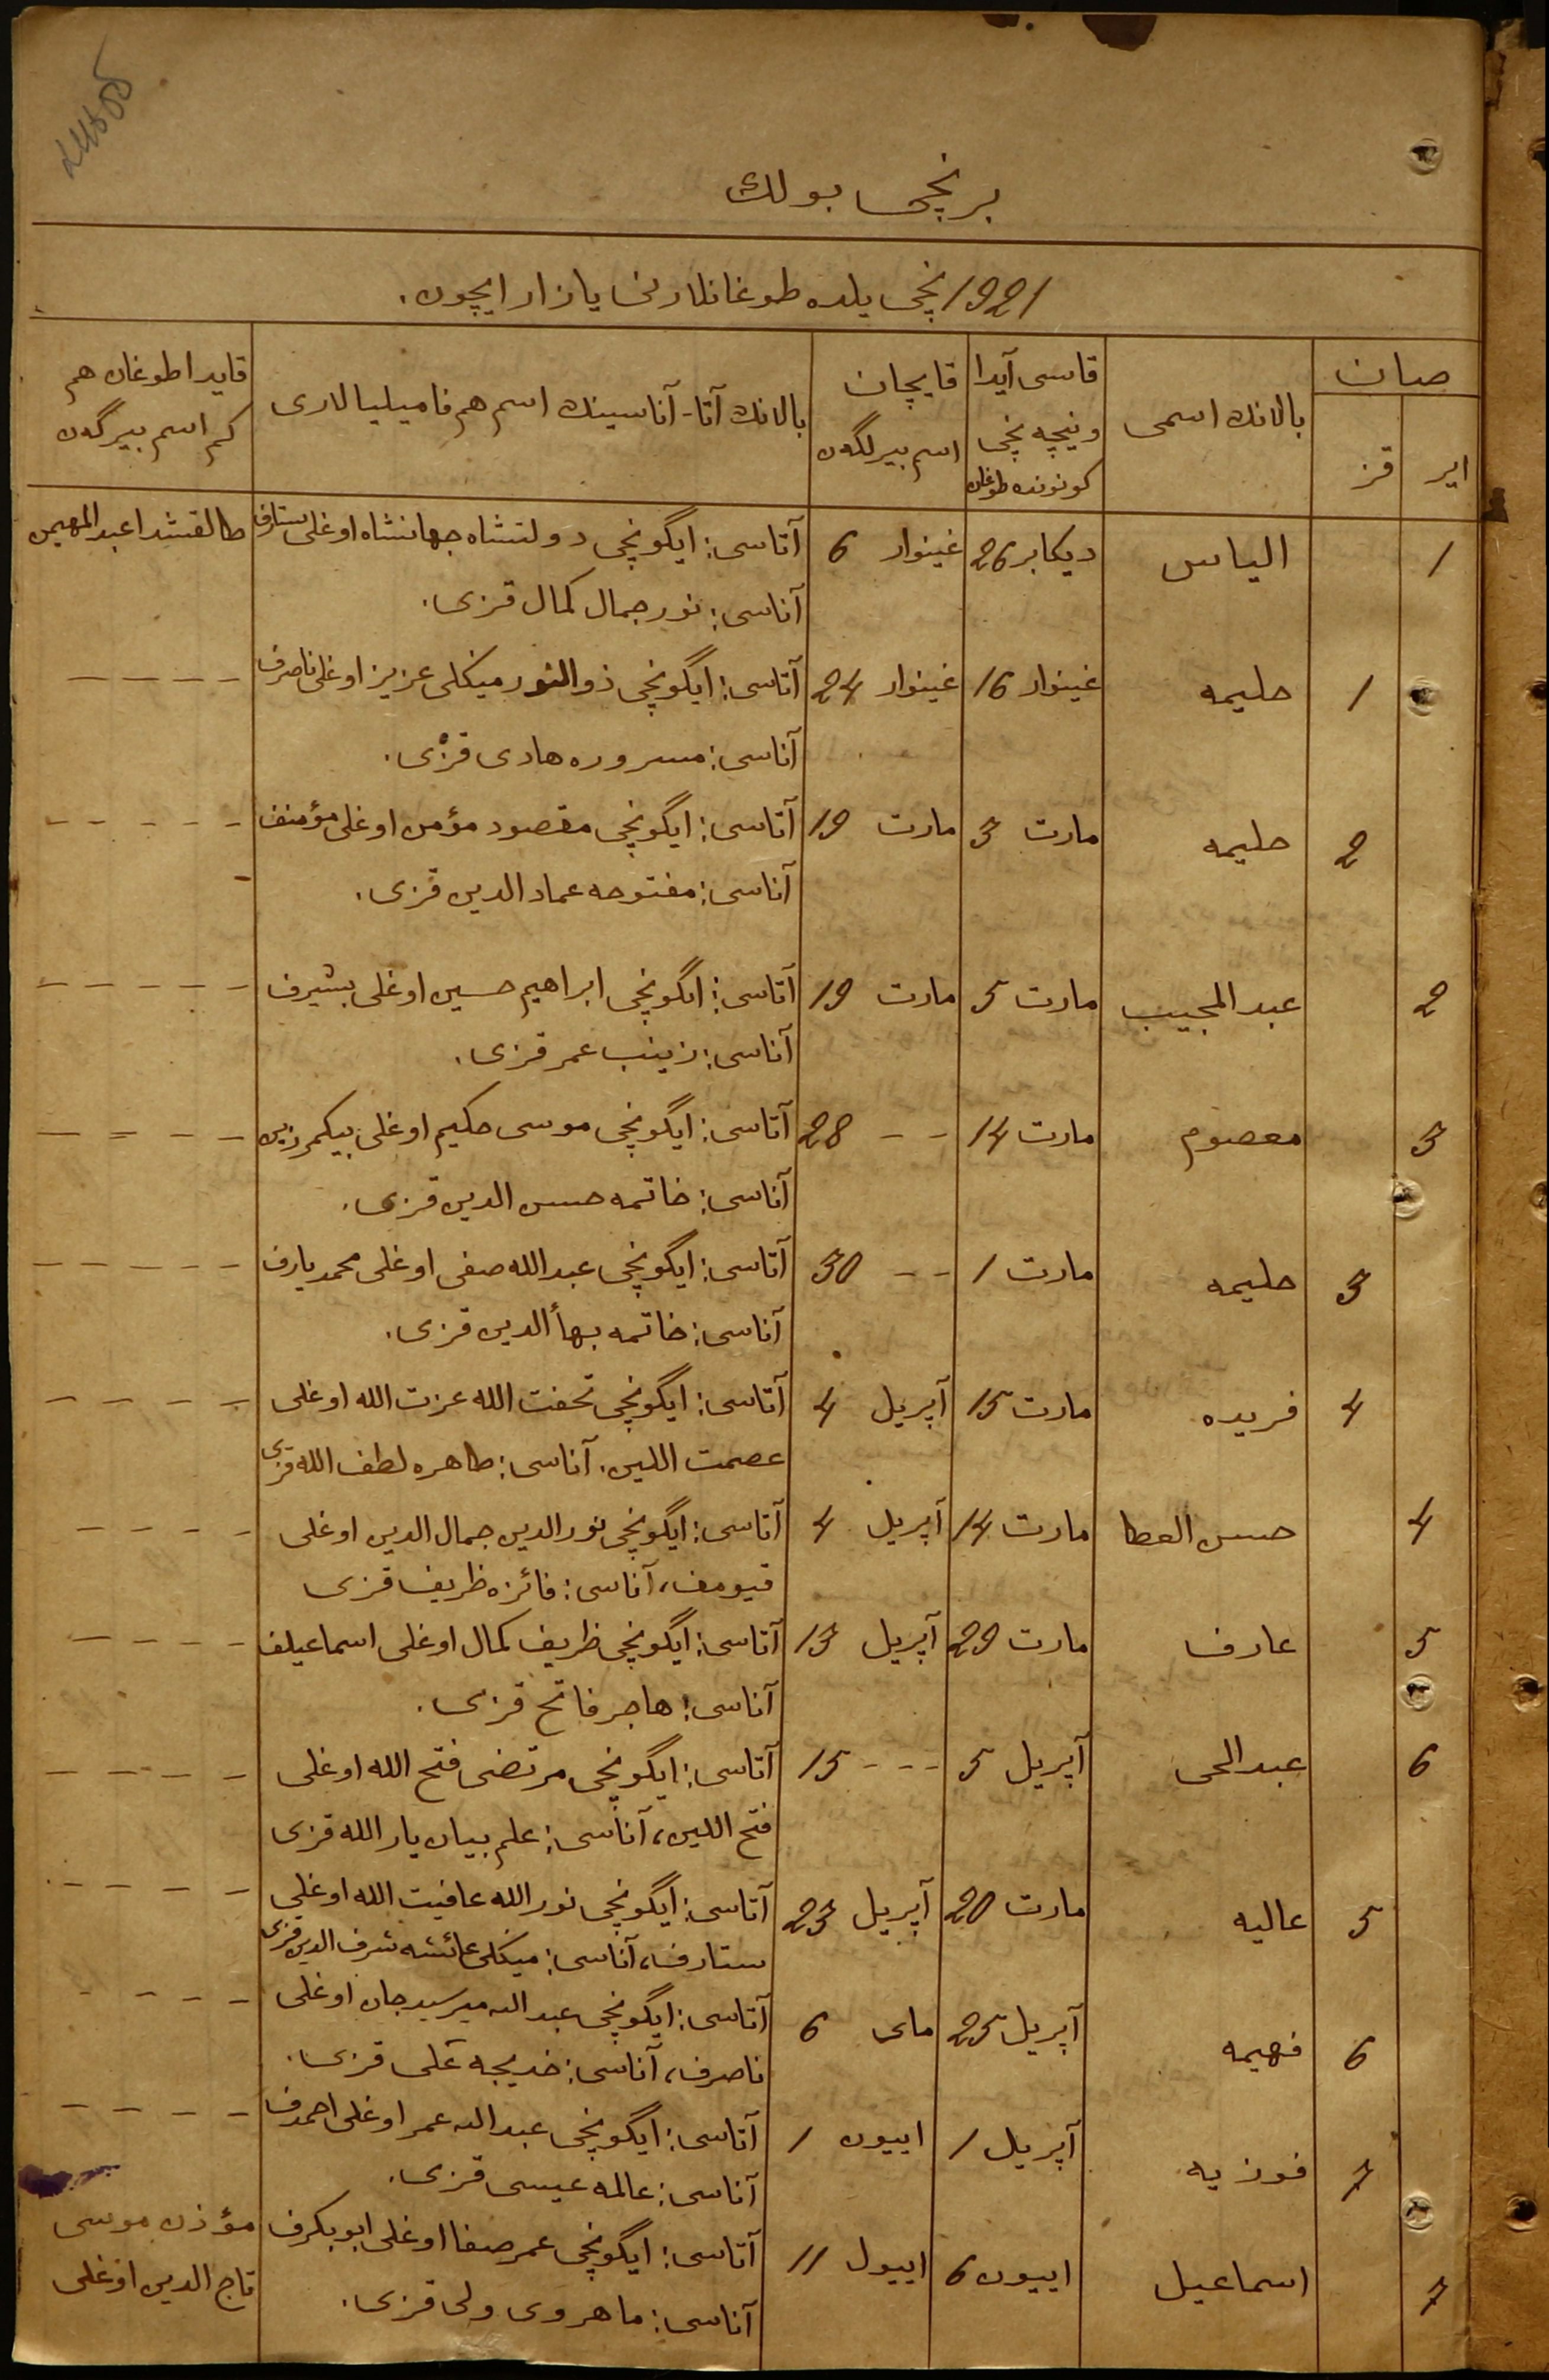 برنچی بولك
1921 نچی یلده طوغانلارنی یازار ایچون.
صان
ایر
قز
بالانڭ اسمی
قاسی آیدا
و نیچه نچی
کوننده طوغان
قایچان
اسم بیرلگەن
بالانڭ آتا - آناسینڭ اسم هم فامیلیالاری
قایدا طوغان هم
کم اسم بیرگەن
1 الیاس دیکابر 26 غینوار 6 آتاسی: ایگونچی دولتشاه جهانشاه اوغلی ستارف طالقشدا عبدالمهیمن
آناسی: نورجمال کمال قزی.
1 حلیمه غینوار 16 غینوار 24 آتاسی: ایگونچی ذوالنور میڭلی عزیز اوغلی ناصرف - - - -
آناسی: مسروره هادی قزی.
2 حلیمه مارت 3 مارت 19 آتاسی: ایگونچی مقصود مؤمن اوغلی مؤمنف - - - - -
آناسی: مفتوحه عمادالدین قزی.
2 عبدالمجیب مارت 5 مارت 19 آتاسی: ایگونچی ابراهیم حسین اوغلی بشیرف - - - - -
آناسی: زینب عمر قزی.
3 معصوم مارت 14 - - 28 آتاسی: ایگونچی موسی حکیم اوغلی - - - - -
آناسی: خاتمه حسن الدین قزی.
3 حلیمه مارت 1 - - 30 آتاسی: ایگونچی عبدالله صفی اوغلی محمدیارف - - - - -
آناسی: خاتمه بهأالدین قزی.
4 فریده مارت 15 آپریل 4 آتاسی: ایگونچی تحفت الله عزت الله اوغلی - - - -
عصمت اللین. آناسی: طاهره لطف الله قزی
4 حسن العطا مارت 14 آپریل 4 آتاسی: ایگونچی نورالدین جمال الدین اوغلی - - - -
قیومف، آناسی: فائزه ظریف قزی
5 عارف مارت 29 آپریل 13 آتاسی: ایگونچی ظریف کمال اوغلی اسماعیلف - - - -
آناسی: هاجر فاتح قزی.
6 عبدالحی آپریل 5 - - - 15 آتاسی: ایگونچی مرتضی فتح الله اوغلی - - - -
فتح اللین، آناسی: علم بیان یارالله قزی
5 عالیه مارت 20 آپریل 23 آتاسی: ایگونچی نورالله عافیت الله اوغلی - - - -
ستارف، آناسی: میڭلی عائشه شرف الدین قزی
6 فهیمه آپریل 25 مای 6 آتاسی: ایگونچی عبدالله میرسیدجان اوغلی - - - -
ناصرف، آناسی: خدیجه علی قزی.
7 فوزیه آپریل 1 اییون 1 آتاسی: ایگونچی عبدالله عمر اوغلی احمدف - - - -
آناسی: عالمه عیسی قزی.
7 اسماعیل اییون 6 اییول 11 آتاسی: ایگونچی عمر صفا اوغلی ابوبکرف مؤذن موسی
آناسی: ماهروی ولی قزی. تاج الدین اوغلی